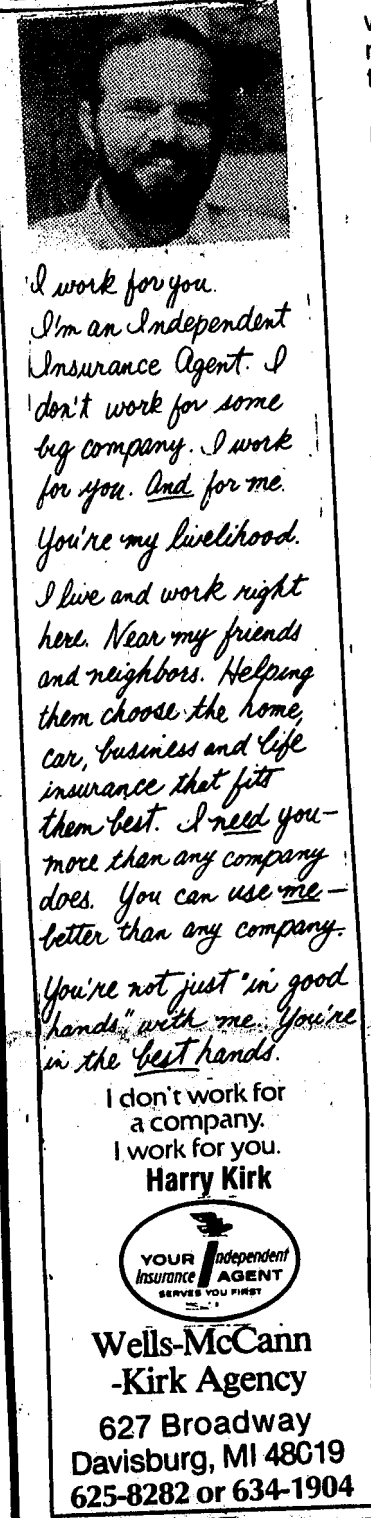 I work for you.
I'm an Independent
Insurance Agent. I
don't work for some
big company. I work
for you. And for me.
You're my livelihood.
I live and work right
here. Near my friends
and neighbors. Helping
them choose the home,
car, business and life
insurance that fits
them best. I need you—
more than any company
does. You can use me—
better than any company.
You're not just "in good
hands" with me. You're
in the best hands.
I don't work for
a company.
I work for you.
Harry Kirk
YOUR Independent
Insurance AGENT
SERVES YOU FIRST
Wells-McCann
-Kirk Agency
627 Broadway
Davisburg, MI 48019
625-8282 or 634-1904